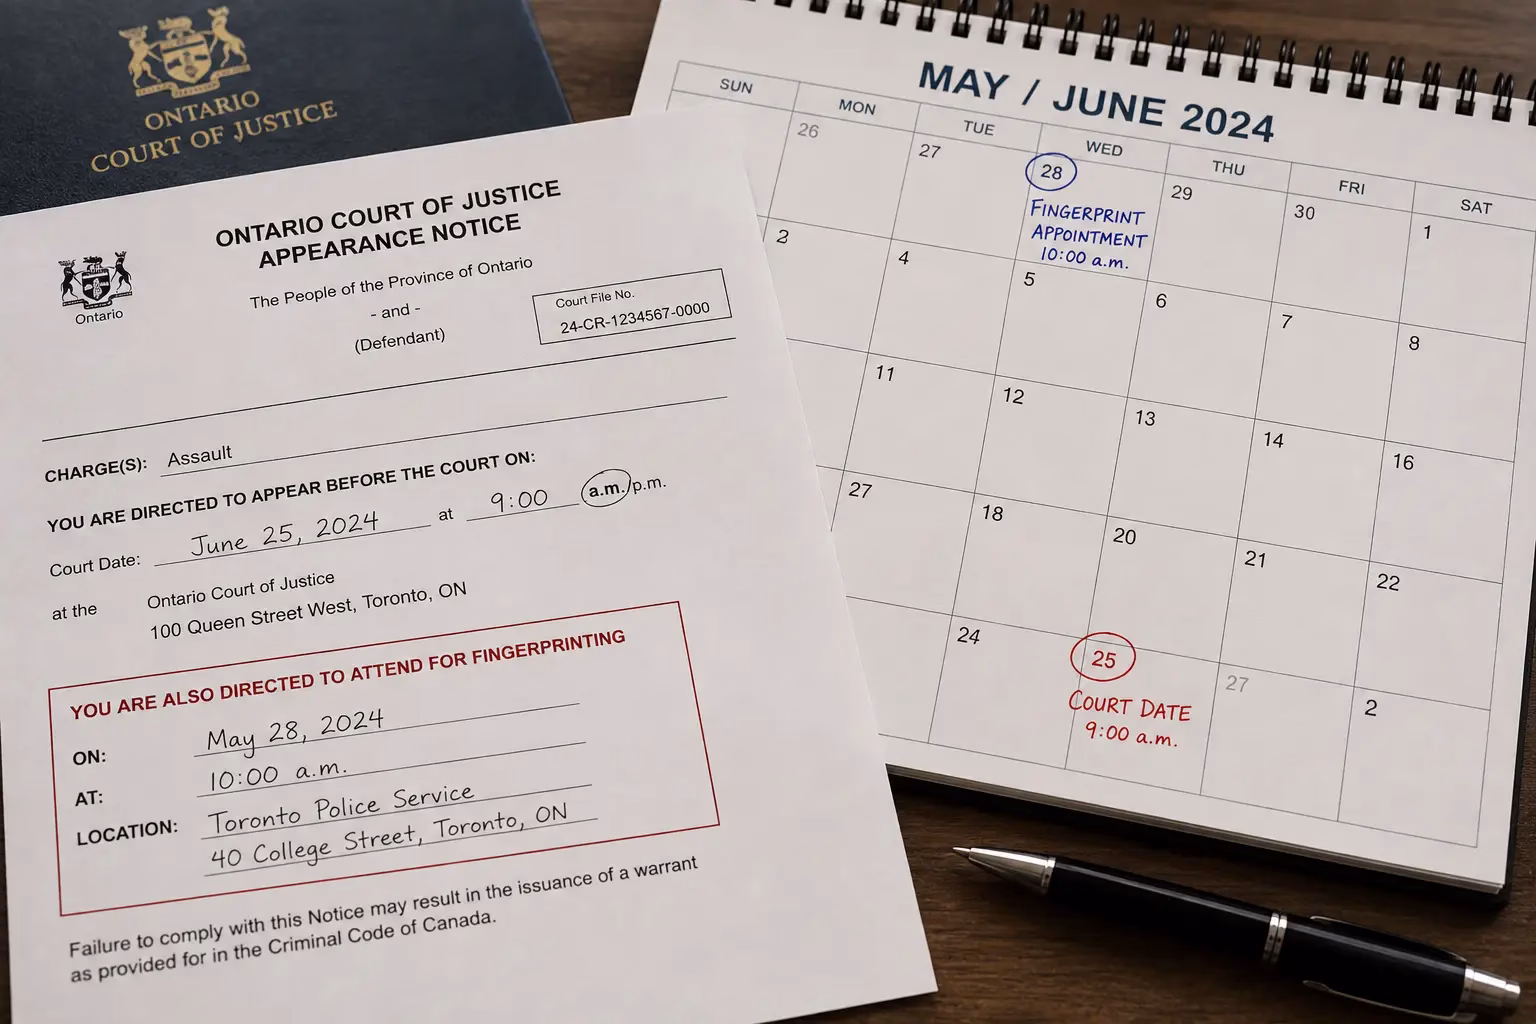 ONTARIO
COURT OF JUSTICE
ONTARIO COURT OF JUSTICE
APPEARANCE NOTICE
Ontario
The People of the Province of Ontario
- and -
(Defendant)
Court File No.
24-CR-1234567-0000
CHARGE(S): Assault
YOU ARE DIRECTED TO APPEAR BEFORE THE COURT ON:
Court Date: June 25, 2024 at 9:00 a.m./p.m.
at the Ontario Court of Justice
100 Queen Street West, Toronto, ON
YOU ARE ALSO DIRECTED TO ATTEND FOR FINGERPRINTING
ON: May 28, 2024
AT: 10:00 a.m.
LOCATION: Toronto Police Service
40 College Street, Toronto, ON
Failure to comply with this Notice may result in the issuance of a warrant
as provided for in the Criminal Code of Canada.
MAY / JUNE 2024
SUN MON TUE WED THU FRI SAT
26 27 28 29 30 1
FINGERPRINT
APPOINTMENT
10:00 a.m.
2 4 5 6 7 8
11 12 13 14 16
27 18 20 21 22
24 25 27 2
COURT DATE
9:00 a.m.